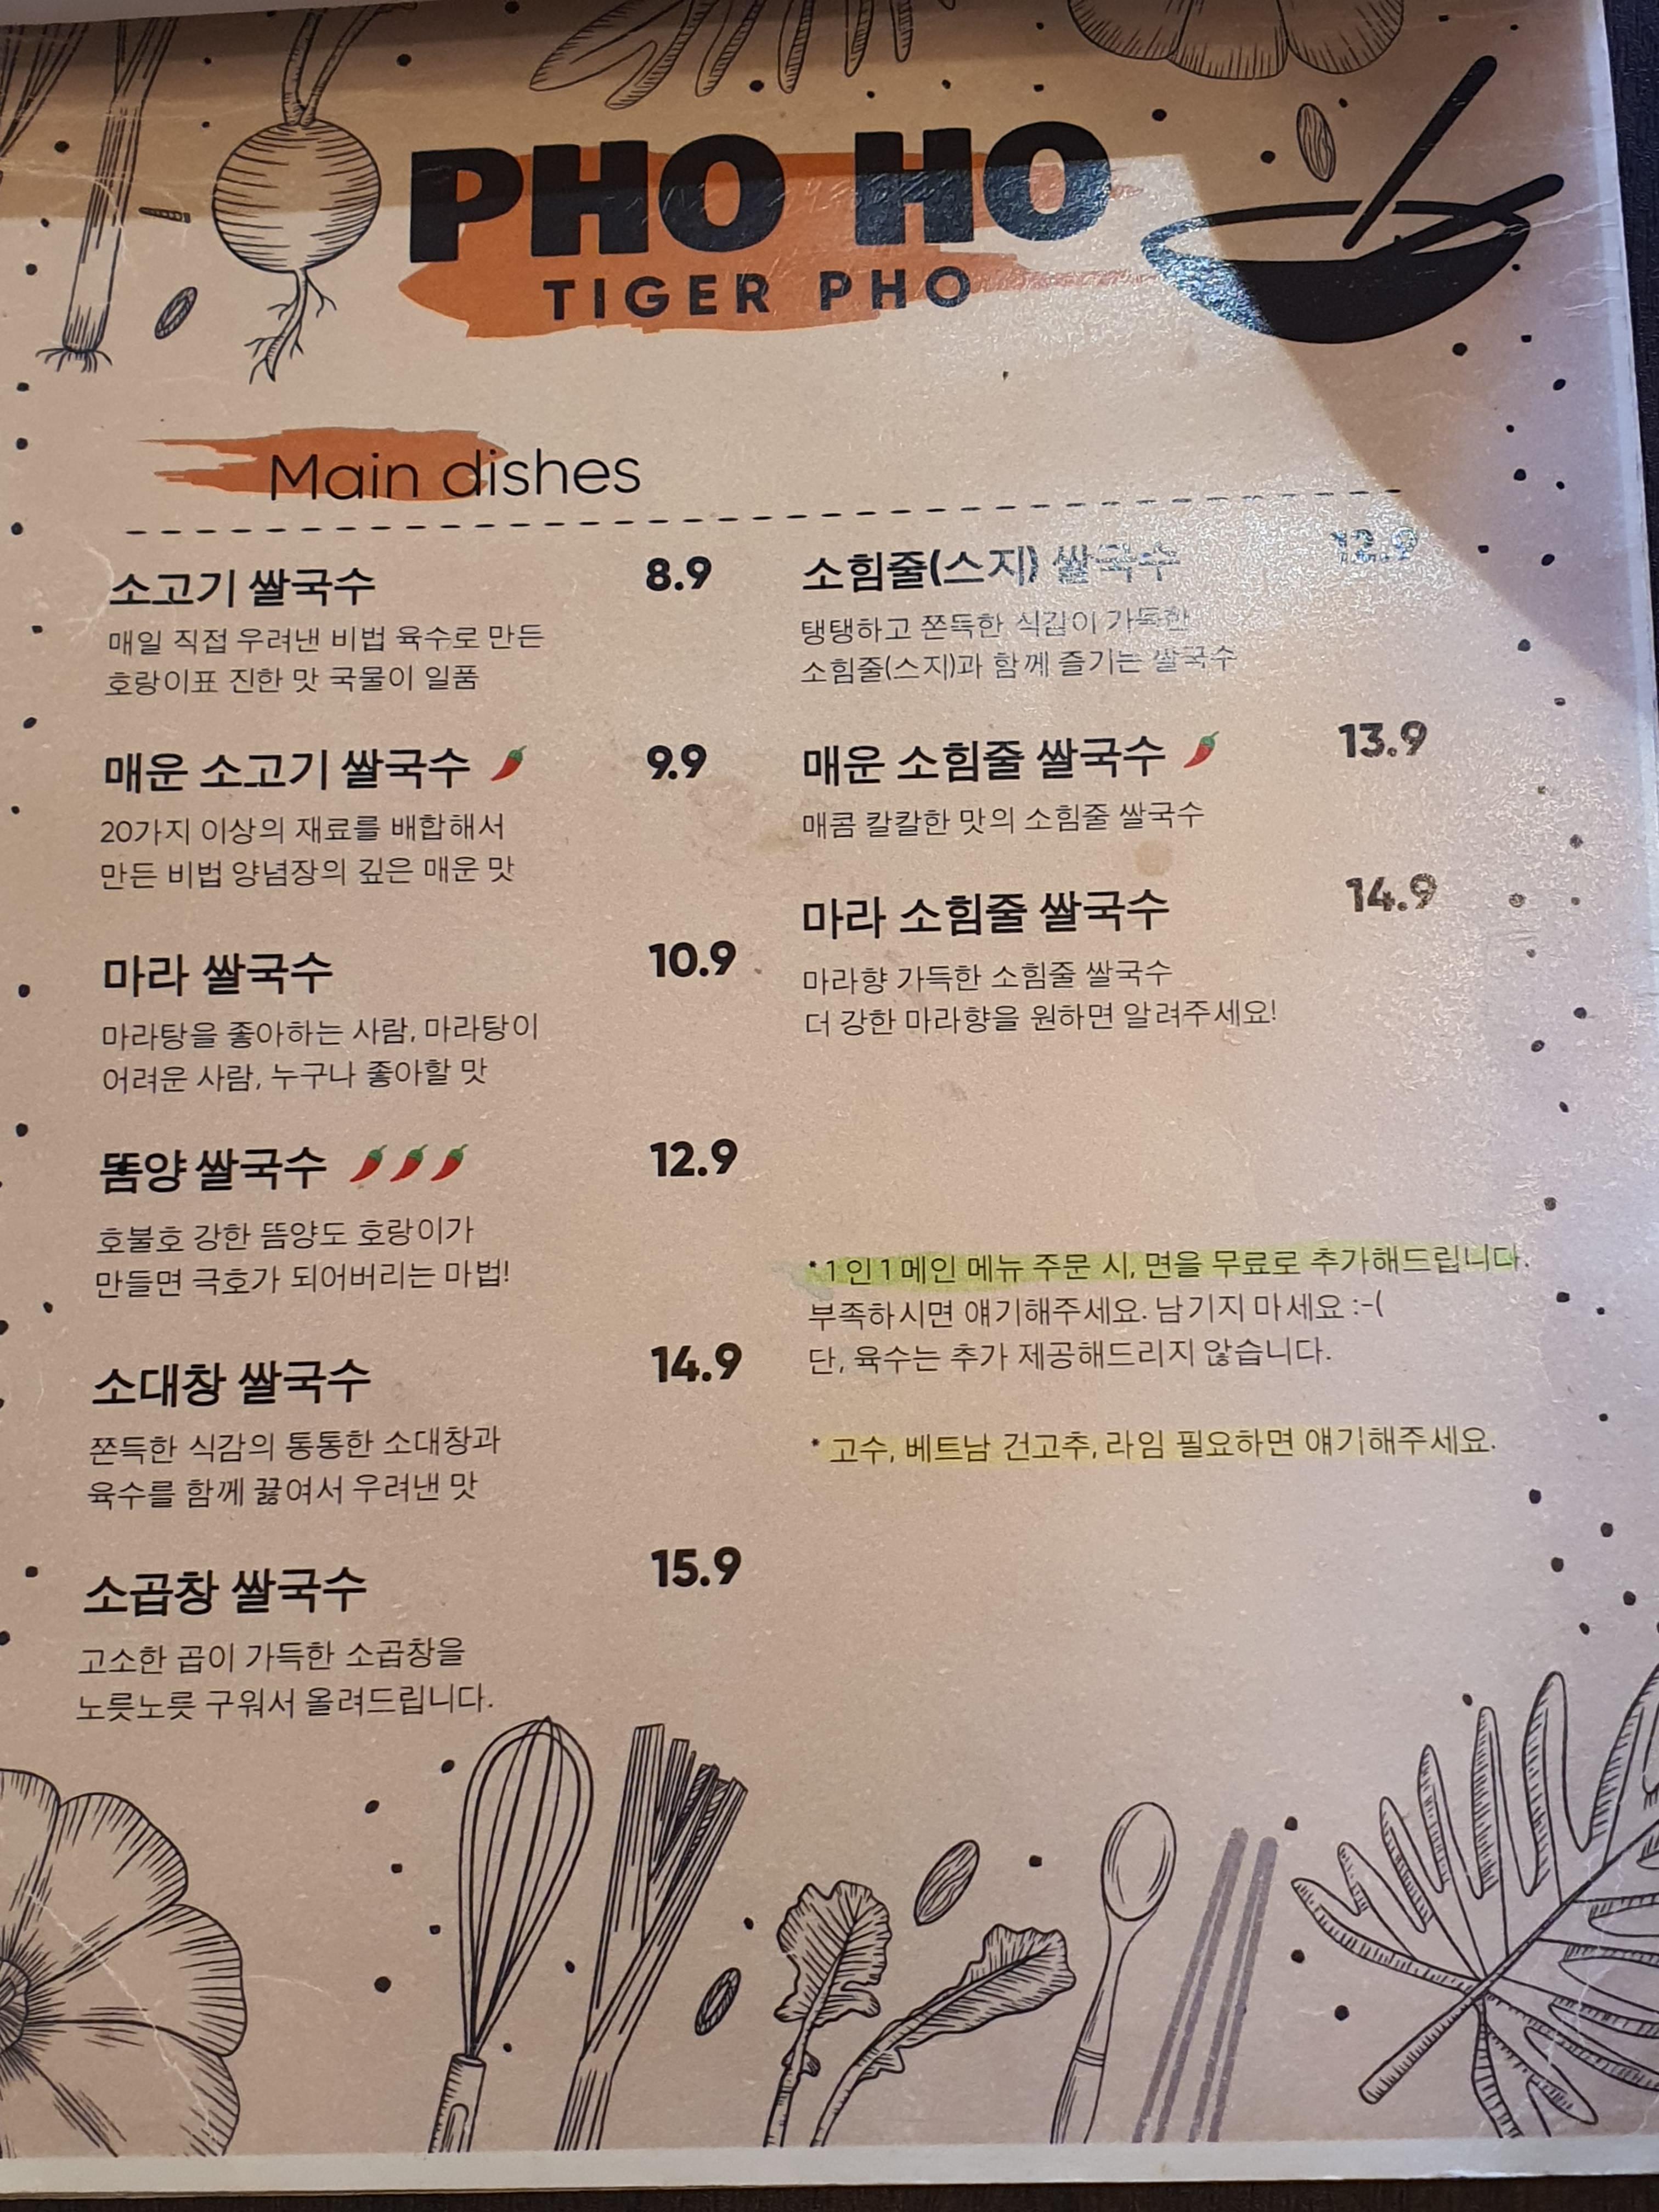 PHO HO
TIGER PHO
Main dishes
소고기 쌀국수 8.9
매일 직접 우려낸 비법 육수로 만든
호랑이표 진한 맛 국물이 일품
매운 소고기 쌀국수 9.9
20가지 이상의 재료를 배합해서
만든 비법 양념장의 깊은 매운 맛
마라 쌀국수 10.9
마라탕을 좋아하는 사람, 마라탕이
어려운 사람, 누구나 좋아할 맛
똠양 쌀국수 12.9
호불호 강한 똠양도 호랑이가
만들면 극호가 되어버리는 마법!
소대창 쌀국수 14.9
쫀득한 식감의 통통한 소대창과
육수를 함께 끓여서 우려낸 맛
소곱창 쌀국수 15.9
고소한 곱이 가득한 소곱창을
노릇노릇 구워서 올려드립니다.
소힘줄(스지) 쌀국수 12.9
탱탱하고 쫀득한 식감이 가득한
소힘줄(스지)과 함께 즐기는 쌀국수
매운 소힘줄 쌀국수 13.9
매콤 칼칼한 맛의 소힘줄 쌀국수
마라 소힘줄 쌀국수 14.9
마라향 가득한 소힘줄 쌀국수
더 강한 마라향을 원하면 알려주세요!
*1인 1메인 메뉴 주문 시, 면을 무료로 추가해드립니다.
부족하시면 얘기해주세요. 남기지 마세요 :-(
단, 육수는 추가 제공해드리지 않습니다.
* 고수, 베트남 건고추, 라임 필요하면 얘기해주세요.